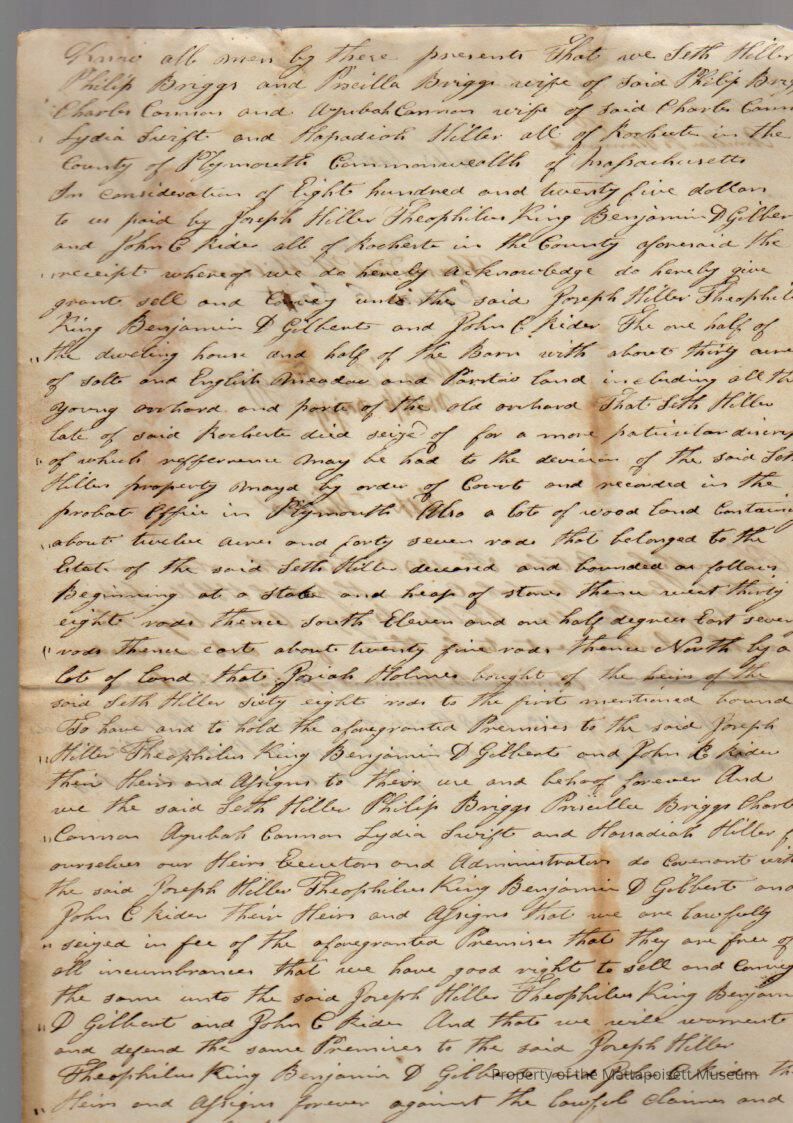 Know all men by these presents That we Seth Hiller
Philip Briggs and Priscilla Briggs wife of said Philip Brig
Charles Cannon and Azubah Cannon wife of said Charles Cann
Lydia Swift and Hapadiah Hiller all of Rochester in the
County of Plymouth Commonwealth of Massachusetts
In consideration of Eight hundred and twenty five dollars
to us paid by Joseph Hiller Theophilus King Benjamin D Gilber
and John C Rider all of Rochester in the County aforesaid the
receipt whereof we do hereby acknowledge do hereby give
grant sell and convey unto the said Joseph Hiller Theophil
King Benjamin D Gilbert and John C. Rider The one half of
the dweling house and half of the Barn with about thirty acre
of salt and English meadow and land including all th
young orchard and part of the old orchard That Seth Hiller
late of said Rochester died seized of for a more paticular discrip
of which refferrence may be had to the devicion of the said Set
Hiller property mayd by order of Court and recorded in the
probate Office in Plymouth Also a lot of wood land Containing
about twelve acres and forty seven rods that belonged to the
Estate of the said Seth Hiller deceased and bounded as follows
Beginning at a stake and heap of stones thence west thirty
eight rods thence south Eleven and one half degrees East seven
rods thence east about twenty five rods thence North by a
lot of land that Josiah Holmes bought of the heirs of the
said Seth Hiller sixty eight rods to the first mentioned bound
To have and to hold the aforegranted Premises to the said Joseph
Hiller Theophilus King Benjamin D Gilbert and John C Rider
their Heirs and Assigns to their use and behoof forever And
we the said Seth Hiller Philip Briggs Priscilla Briggs Charl
Cannon Azubah Cannon Lydia Swift and Hassadiah Hiller f
ourselves our Heirs Executors and Administrators do Covenant with
the said Joseph Hiller Theophilus King Benjamin D Gilbert and
John C Rider their Heirs and Assigns that we are lawfully
seized in fee of the aforegranted Premises that they are free of
all incumbrances that we have good right to sell and Convey
the same unto the said Joseph Hiller Theophilus King Benjam
D Gilbert and John C Rider And that we will warrent
and defend the same Premises to the said Joseph Hiller
Theophilus King Benjamin D Gilbe Property of the Mattapoisett Museum th
Heirs and Assigns forever against the lawful claims and